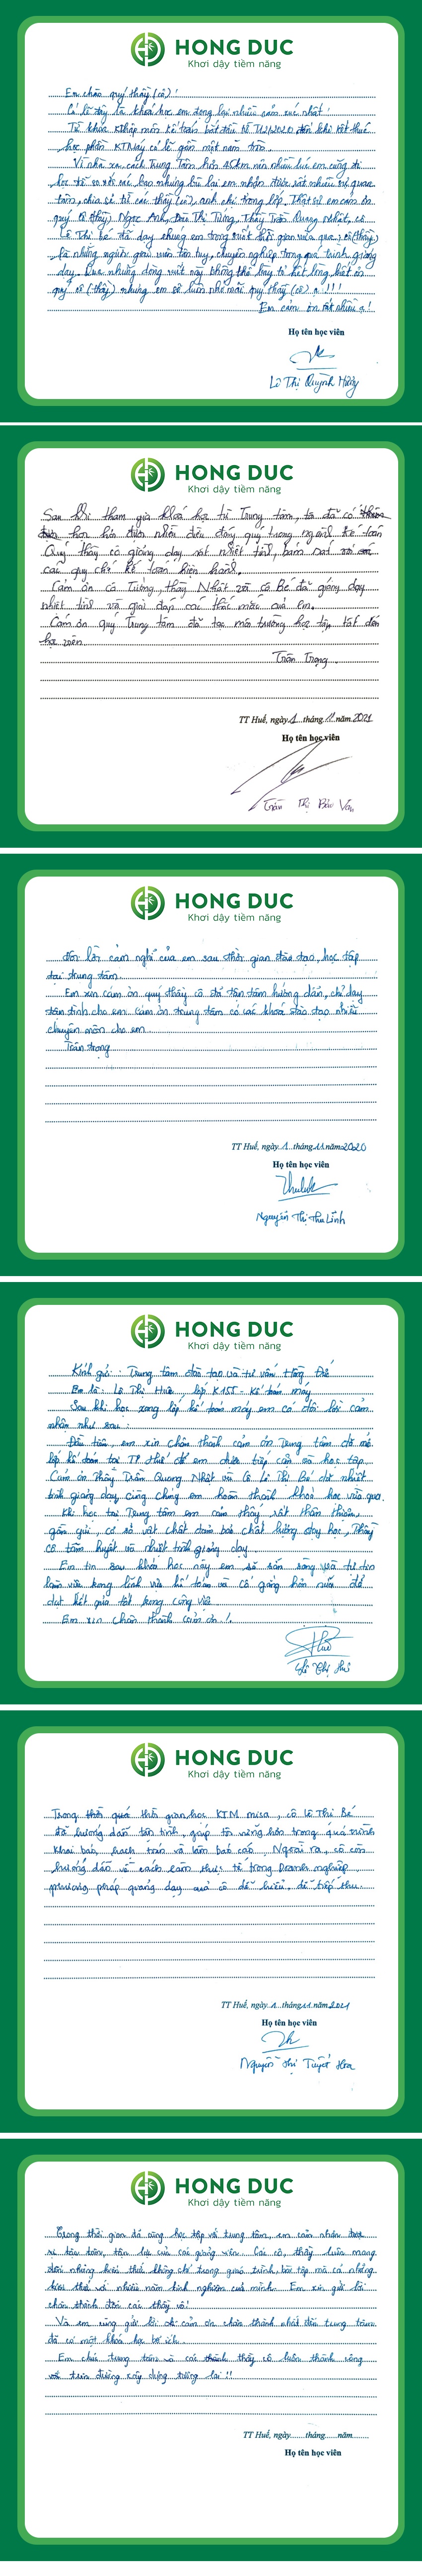 HONG DUC
Khơi dậy tiềm năng
Em chào quý thầy (cô)!
Có lẽ đây là khoá học em đọng lại nhiều cảm xúc nhất!
học phần KTMáy có lẽ gần một năm trời.
Vì nhà xa, cách Trung tâm hơn 45km nên nhiều lúc em cũng đi
học trễ so với các bạn nhưng bù lại em nhận được rất nhiều sự quan
tâm, chia sẻ từ các thầy (cô), anh chị trong lớp. Thật sự em cảm ơn
quý cô (thầy) Ngọc Anh, Thị Tường, Thầy Trần Quang Nhật, cô
Lê Thị Bé đã dạy chúng em trong suốt thời gian vừa qua, cô (thầy)
là những người giáo viên tận tuỵ, chuyên nghiệp trong quá trình giảng
dạy. Qua những dòng viết này không thể bày tỏ hết lòng biết ơn
quý cô (thầy) nhưng em sẽ luôn nhớ mãi quý thầy (cô) ạ!!!!
Em cảm ơn rất nhiều ạ!
Họ tên học viên
Lê Thị Quỳnh
HONG DUC
Khơi dậy tiềm năng
Sau khi tham gia khoá học từ Trung tâm, đã có
học hỏi được nhiều điều đáng quý trong ngành kế toán
Quý thầy cô giảng dạy rất nhiệt tình, bám sát với
các quy chế kế toán hiện hành.
Cảm ơn cô Tường, thầy Nhật và cô Bé đã giảng dạy
nhiệt tình và giải đáp các thắc mắc của em.
Cảm ơn quý Trung tâm đã tạo môi trường học tập tốt đến
học viên.
Trân Trọng.
TT Huế, ngày 1 tháng 11 năm 2021
Họ tên học viên
Trần Thị Bảo Vân
HONG DUC
Khơi dậy tiềm năng
Đôi lời cảm nghĩ của em sau thời gian đào tạo, học tập
tại trung tâm.
Em xin cảm ơn quý thầy cô đã tận tâm hướng dẫn, chỉ dạy
tận tình cho em. Cảm ơn trung tâm có các khoá đào tạo nhiều
chuyên môn cho em.
Trân trọng
TT Huế, ngày 1 tháng 11 năm 2020
Họ tên học viên
Nguyễn Thị Thu Linh
HONG DUC
Khơi dậy tiềm năng
Kính gửi: Trung tâm đào tạo và tư vấn Hồng Đức
Em là: Lê Thị Huê, lớp K15T - Kế toán máy
Sau khi học xong lớp kế toán máy em có đôi lời cảm
nhận như sau:
Đầu tiên em xin chân thành cảm ơn Trung tâm đã mở
lớp kế toán tại TP Huế để em được tiếp cận và học tập.
Cảm ơn Thầy Trần Quang Nhật và Cô Lê Thị Bé đã nhiệt
tình giảng dạy cùng chúng em hoàn thành khoá học vừa qua.
Khi học tại Trung tâm em cảm thấy rất thân thiện,
gần gũi, cơ sở vật chất đảm bảo chất lượng dạy học, Thầy
Cô tâm huyết và nhiệt tình giảng dạy.
Em tin sau khoá học này em sẽ sẵn sàng và tự tin
làm việc trong lĩnh vực kế toán và cố gắng hơn nữa để
đạt kết quả tốt trong công việc.
Em xin chân thành cảm ơn!
Lê Thị Huê
HONG DUC
Khơi dậy tiềm năng
Trong quá thời gian học KTM misa, cô Lê Thị Bé
đã hướng dẫn tận tình, giúp tôi vững hơn trong quá trình
khai báo, hạch toán và làm báo cáo. Ngoài ra, cô còn
hướng dẫn về cách làm thực tế trong Doanh nghiệp,
phương pháp giảng dạy của cô dễ hiểu, dễ tiếp thu.
TT Huế, ngày 1 tháng 11 năm 2021
Họ tên học viên
Nguyễn Thị Tuyết Hoa
HONG DUC
Khơi dậy tiềm năng
Trong thời gian đã cùng học tập với trung tâm, em cảm nhận được
sự tận tâm, tận lực của các giảng viên. Các cô, thầy luôn mang
đến những kiến thức không chỉ trong giáo trình, bài tập mà cả những
kiến thức về nhiều năm kinh nghiệm của mình. Em xin gửi lời
chân thành đến các thầy cô!
Và em cũng gửi lời cảm ơn chân thành nhất đến trung tâm
đã có một khoá học bổ ích.
Em chúc trung tâm và các thầy cô luôn thành công
trên đường xây dựng tương lai!!
TT Huế, ngày.......tháng......năm........
Họ tên học viên